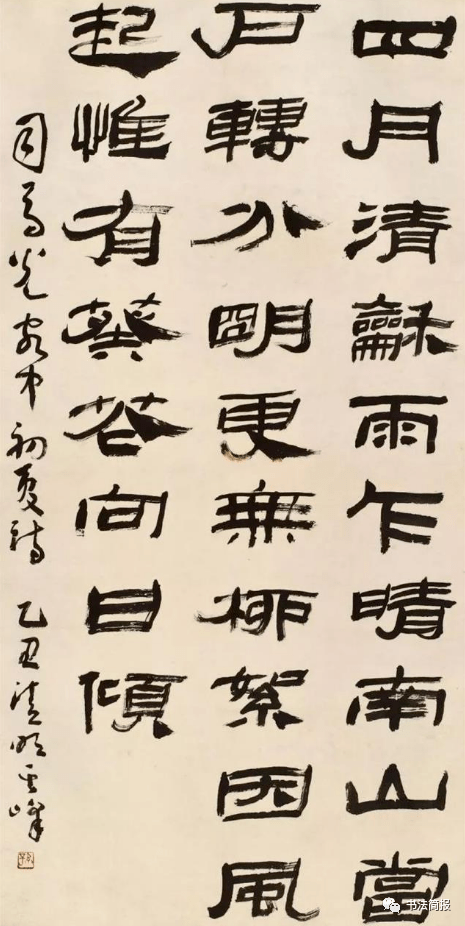 四月清龢雨乍晴南山當
户轉分明更無柳絮因風
起惟有葵花向日傾
司馬光客中初夏詩 乙丑清明雲峰
书法简报